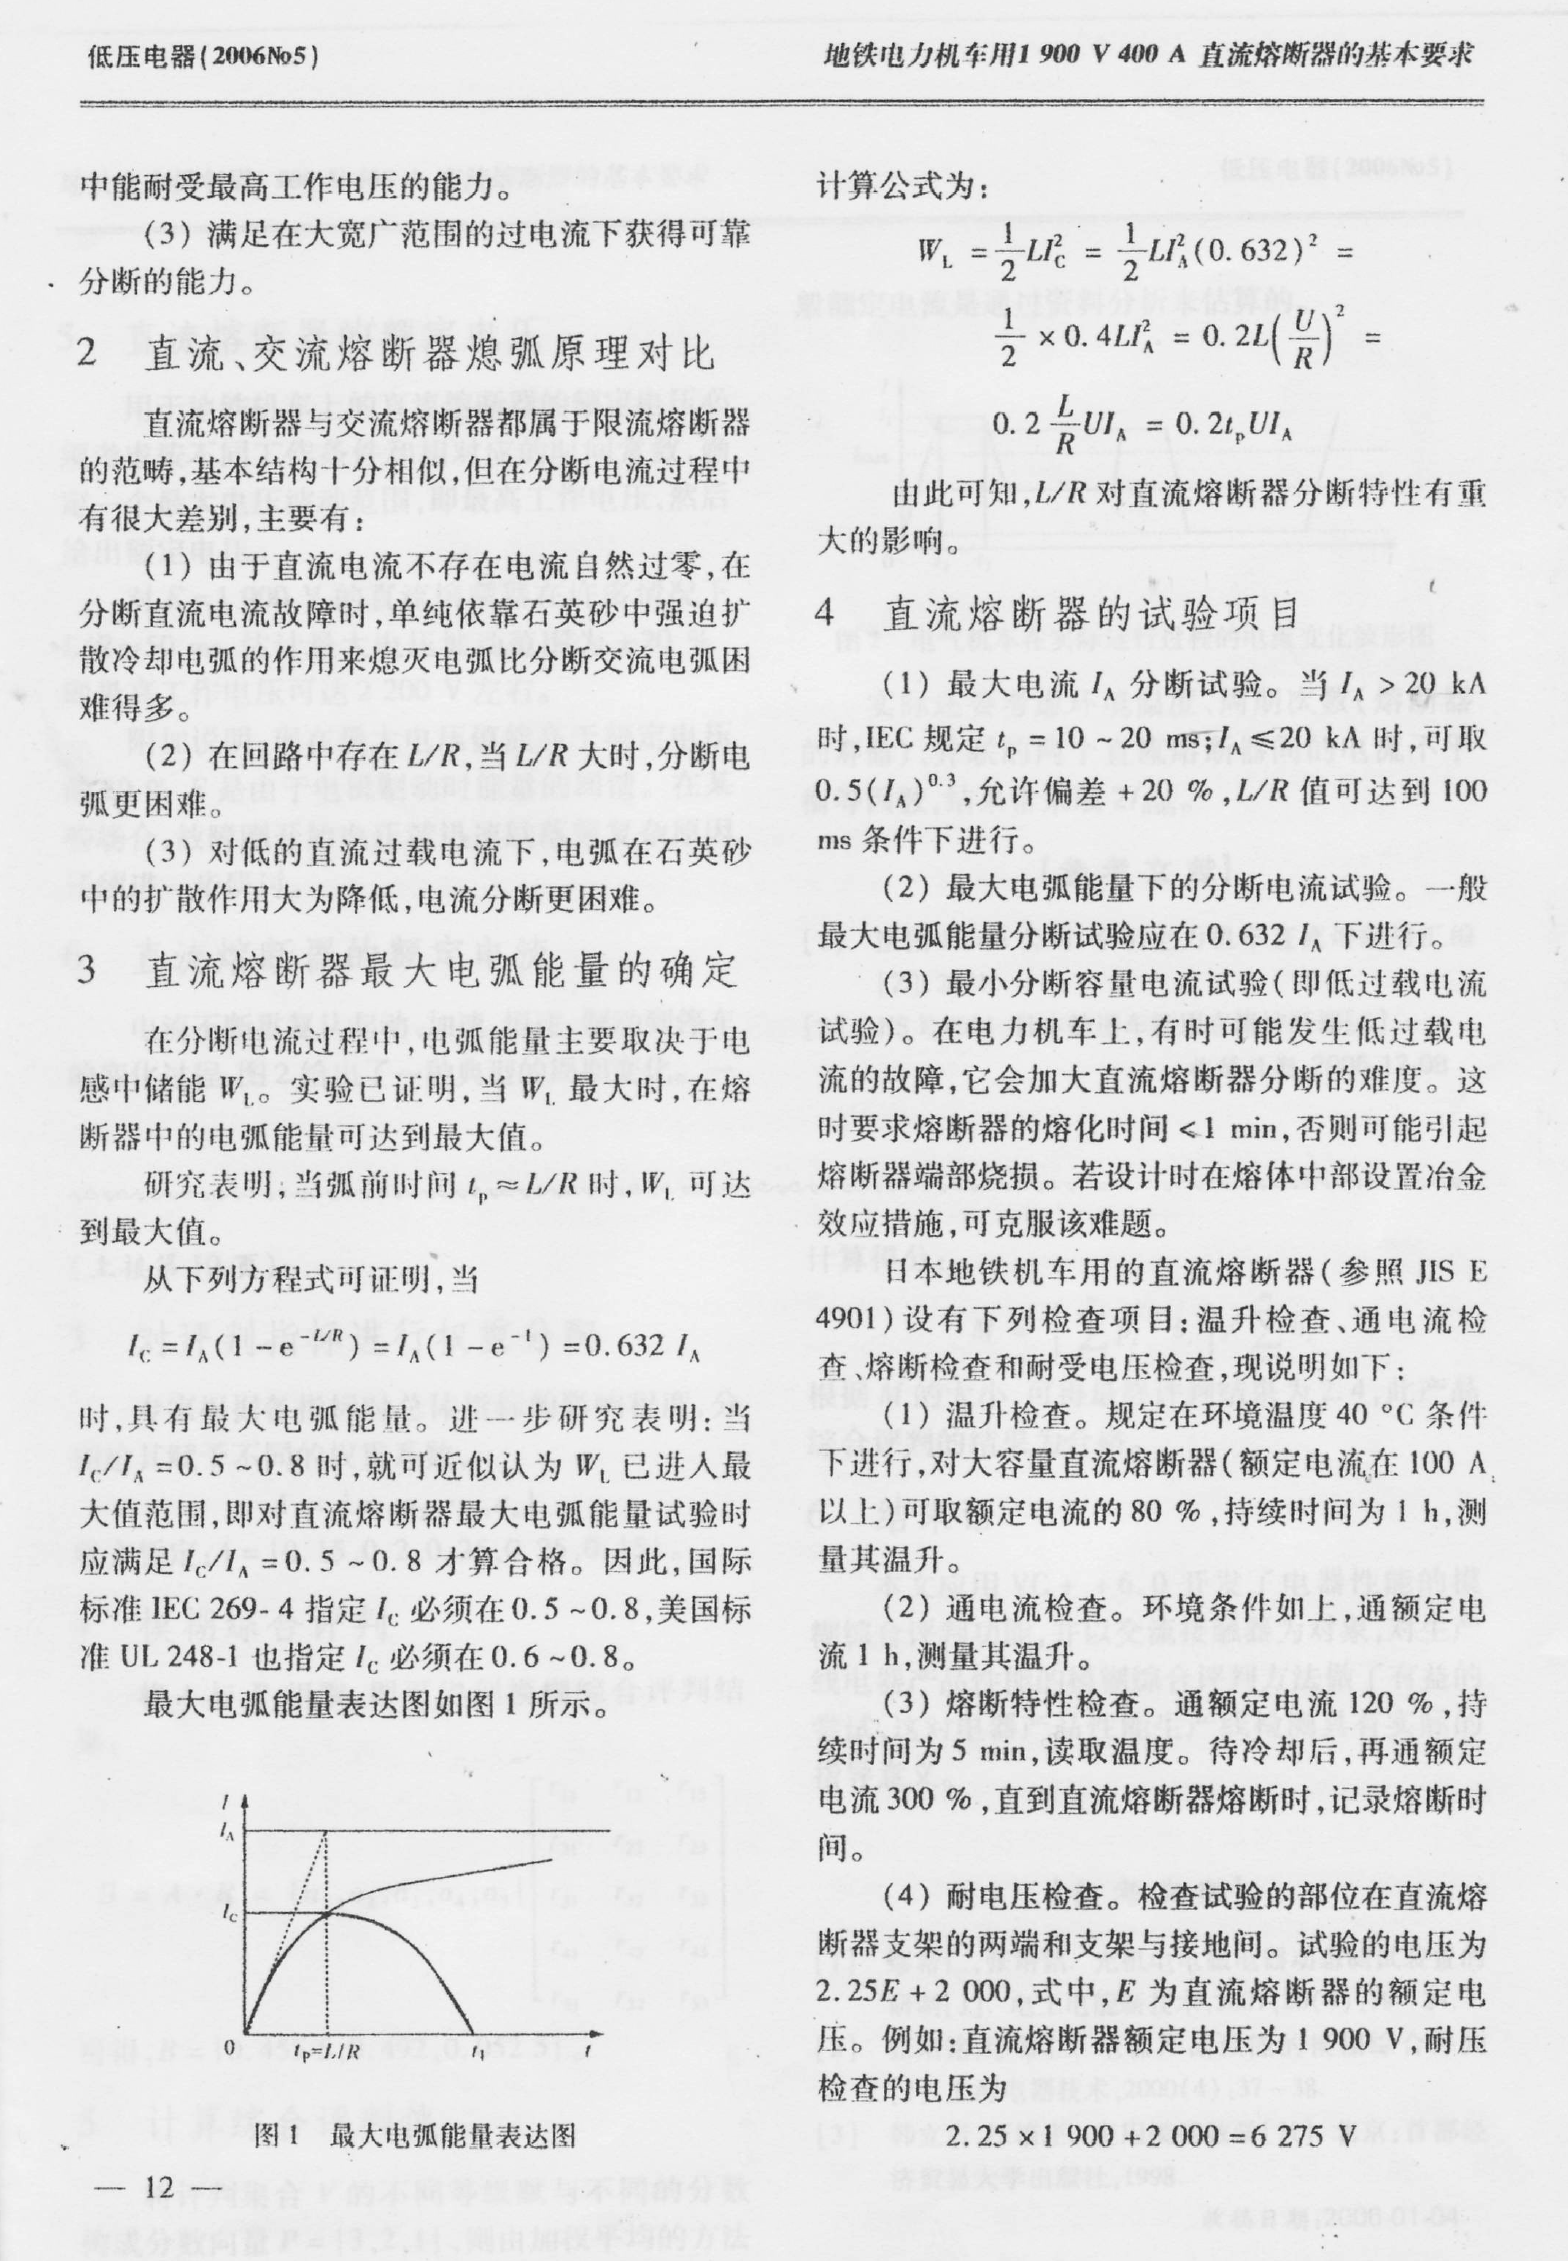 低压电器(2006№5)
地铁电力机车用1 900 V 400 A 直流熔断器的基本要求
中能耐受最高工作电压的能力。
(3) 满足在大宽广范围的过电流下获得可靠
分断的能力。
2 直流、交流熔断器熄弧原理对比
直流熔断器与交流熔断器都属于限流熔断器
的范畴,基本结构十分相似,但在分断电流过程中
有很大差别,主要有:
(1) 由于直流电流不存在电流自然过零,在
分断直流电流故障时,单纯依靠石英砂中强迫扩
散冷却电弧的作用来熄灭电弧比分断交流电弧困
难得多。
(2) 在回路中存在 L/R,当 L/R 大时,分断电
弧更困难。
(3) 对低的直流过载电流下,电弧在石英砂
中的扩散作用大为降低,电流分断更困难。
3 直流熔断器最大电弧能量的确定
在分断电流过程中,电弧能量主要取决于电
感中储能 W_L。实验已证明,当 W_L 最大时,在熔
断器中的电弧能量可达到最大值。
研究表明,当弧前时间 t_p≈L/R 时,W_L 可达
到最大值。
从下列方程式可证明,当
I_C = I_A(1 - e^{-L/R}) = I_A(1 - e^{-1}) = 0.632 I_A
时,具有最大电弧能量。进一步研究表明:当
I_C/I_A = 0.5 ~ 0.8 时,就可近似认为 W_L 已进入最
大值范围,即对直流熔断器最大电弧能量试验时
应满足 I_C/I_A = 0.5 ~ 0.8 才算合格。因此,国际
标准 IEC 269-4 指定 I_C 必须在 0.5 ~ 0.8,美国标
准 UL 248-1 也指定 I_C 必须在 0.6 ~ 0.8。
最大电弧能量表达图如图 1 所示。
I
I_A
I_C
0 t_P=L/R t_1 t
图 1 最大电弧能量表达图
— 12 —
计算公式为:
W_L = \frac{1}{2}LI_C^2 = \frac{1}{2}LI_A^2(0.632)^2 =
\frac{1}{2} × 0.4LI_A^2 = 0.2L(\frac{U}{R})^2 =
0.2\frac{L}{R}UI_A = 0.2t_pUI_A
由此可知,L/R 对直流熔断器分断特性有重
大的影响。
4 直流熔断器的试验项目
(1) 最大电流 I_A 分断试验。当 I_A > 20 kA
时,IEC 规定 t_p = 10 ~ 20 ms;I_A ≤ 20 kA 时,可取
0.5(I_A)^{0.3},允许偏差 + 20 %,L/R 值可达到 100
ms 条件下进行。
(2) 最大电弧能量下的分断电流试验。一般
最大电弧能量分断试验应在 0.632 I_A 下进行。
(3) 最小分断容量电流试验(即低过载电流
试验)。在电力机车上,有时可能发生低过载电
流的故障,它会加大直流熔断器分断的难度。这
时要求熔断器的熔化时间 <1 min,否则可能引起
熔断器端部烧损。若设计时在熔体中部设置冶金
效应措施,可克服该难题。
日本地铁机车用的直流熔断器(参照 JIS E
4901)设有下列检查项目:温升检查、通电流检
查、熔断检查和耐受电压检查,现说明如下:
(1) 温升检查。规定在环境温度 40 °C 条件
下进行,对大容量直流熔断器(额定电流在 100 A
以上)可取额定电流的 80 %,持续时间为 1 h,测
量其温升。
(2) 通电流检查。环境条件如上,通额定电
流 1 h,测量其温升。
(3) 熔断特性检查。通额定电流 120 %,持
续时间为 5 min,读取温度。待冷却后,再通额定
电流 300 %,直到直流熔断器熔断时,记录熔断时
间。
(4) 耐电压检查。检查试验的部位在直流熔
断器支架的两端和支架与接地间。试验的电压为
2.25E + 2 000,式中,E 为直流熔断器的额定电
压。例如:直流熔断器额定电压为 1 900 V,耐压
检查的电压为
2.25 × 1 900 + 2 000 = 6 275 V